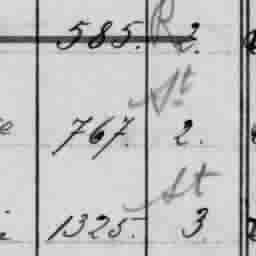 585. R 2.
St
767. 2.
St
1325. 3.